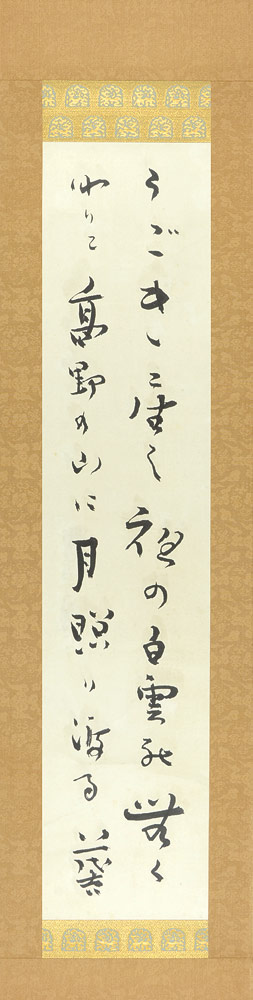 うごきゐし夜の白雲の無く
なりて高野の山に月照り渡る 茂吉